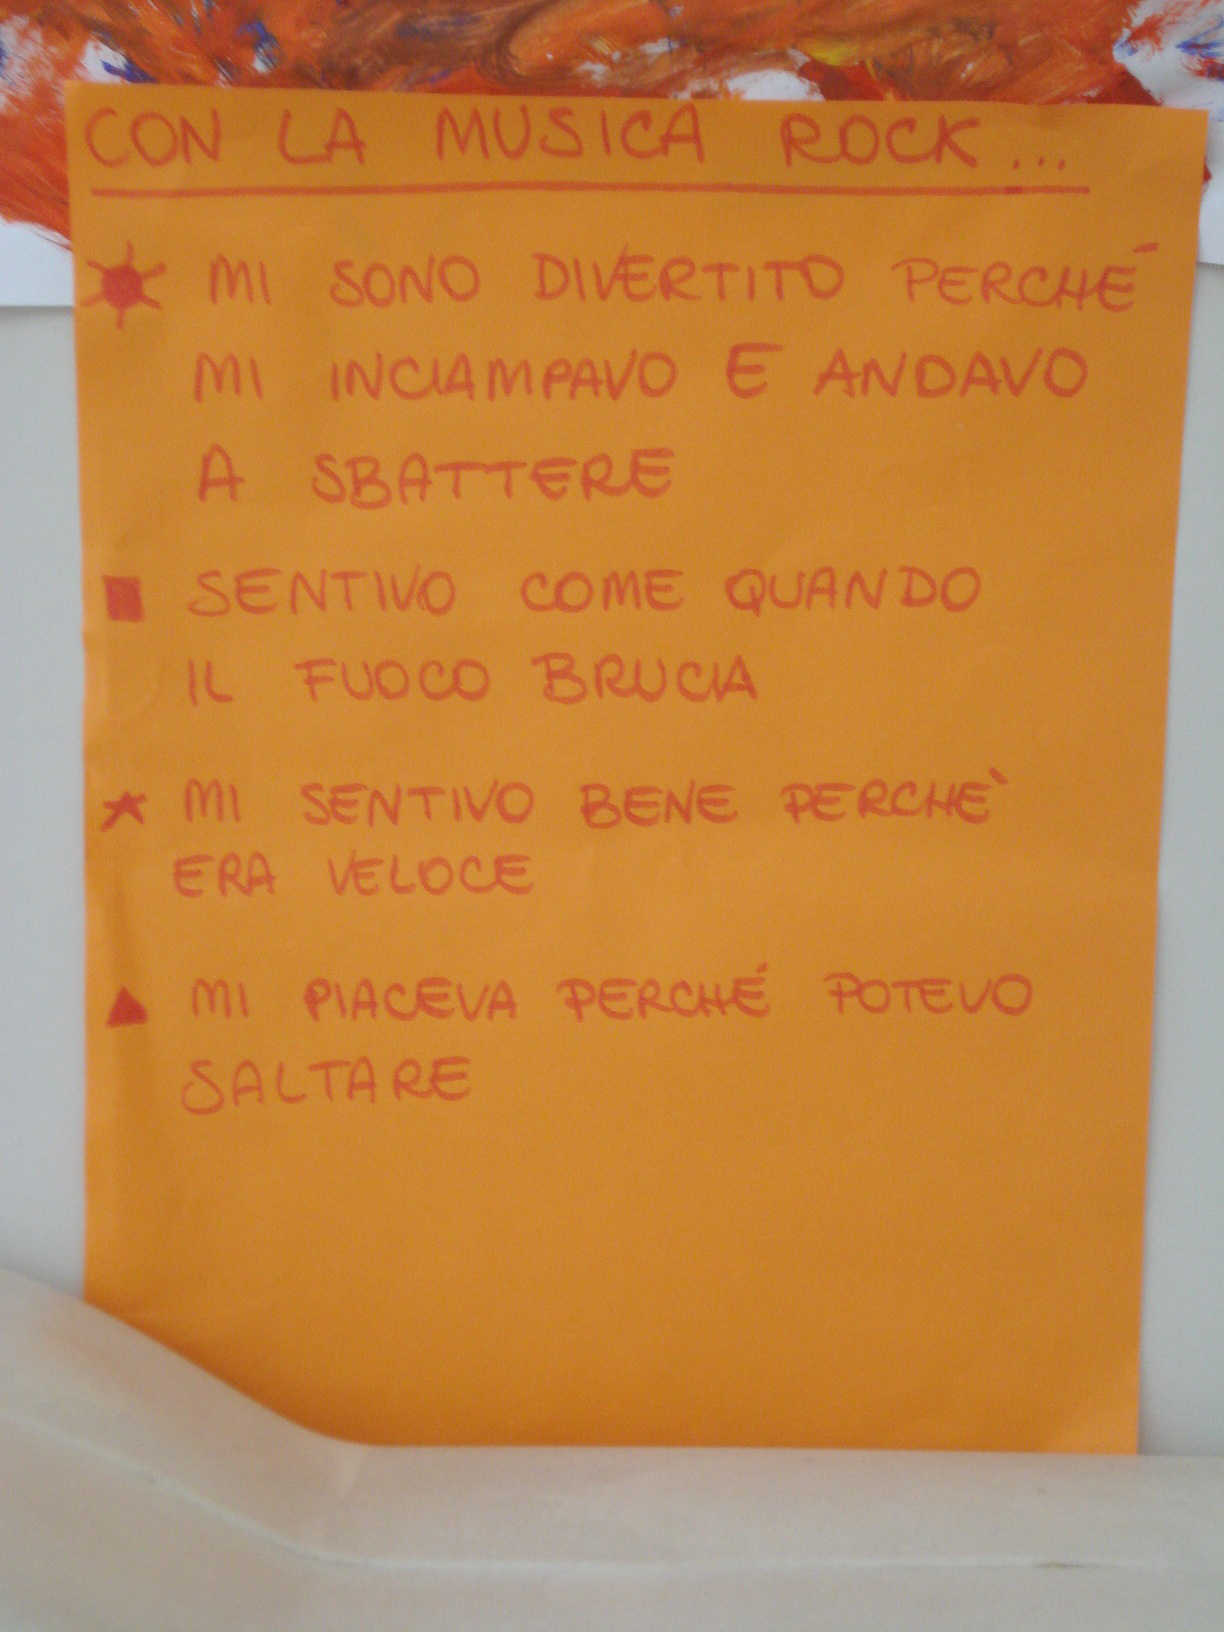 CON LA MUSICA ROCK...
MI SONO DIVERTITO PERCHÉ
MI INCIAMPAVO E ANDAVO
A SBATTERE
SENTIVO COME QUANDO
IL FUOCO BRUCIA
MI SENTIVO BENE PERCHÈ
ERA VELOCE
MI PIACEVA PERCHÉ POTEVO
SALTARE